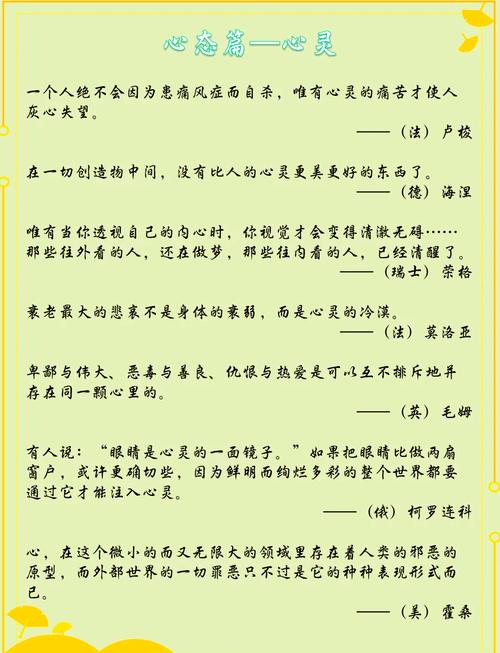 心态篇—心灵
一个人绝不会因为患痛风症而自杀，唯有心灵的痛苦才使人
灰心失望。
——（法）卢梭
在一切创造物中间，没有比人的心灵更美更好的东西了。
——（德）海涅
唯有当你透视自己的内心时，你视觉才会变得清澈无碍……
那些往外看的人，还在做梦，那些往内看的人，已经清醒了。
——（瑞士）荣格
衰老最大的悲哀不是身体的衰弱，而是心灵的冷漠。
——（法）莫洛亚
卑鄙与伟大、恶毒与善良、仇恨与热爱是可以互不排斥地并
存在同一颗心里的。
——（英）毛姆
有人说：“眼睛是心灵的一面镜子。”如果把眼睛比做两扇
窗户，或许更确切些，因为鲜明而绚烂多彩的整个世界都要
通过它才能注入心灵。
——（俄）柯罗连科
心，在这个微小的而又无限大的领域里存在着人类的邪恶的
原型，而外部世界的一切罪恶只不过是它的种种表现形式而
已。
——（美）霍桑